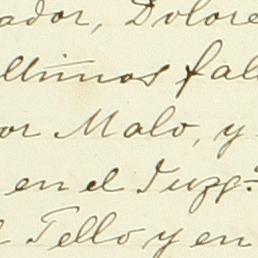 ador, Dolore
ltimos fal
or Malo, y
en el Juzg.
Tello y en